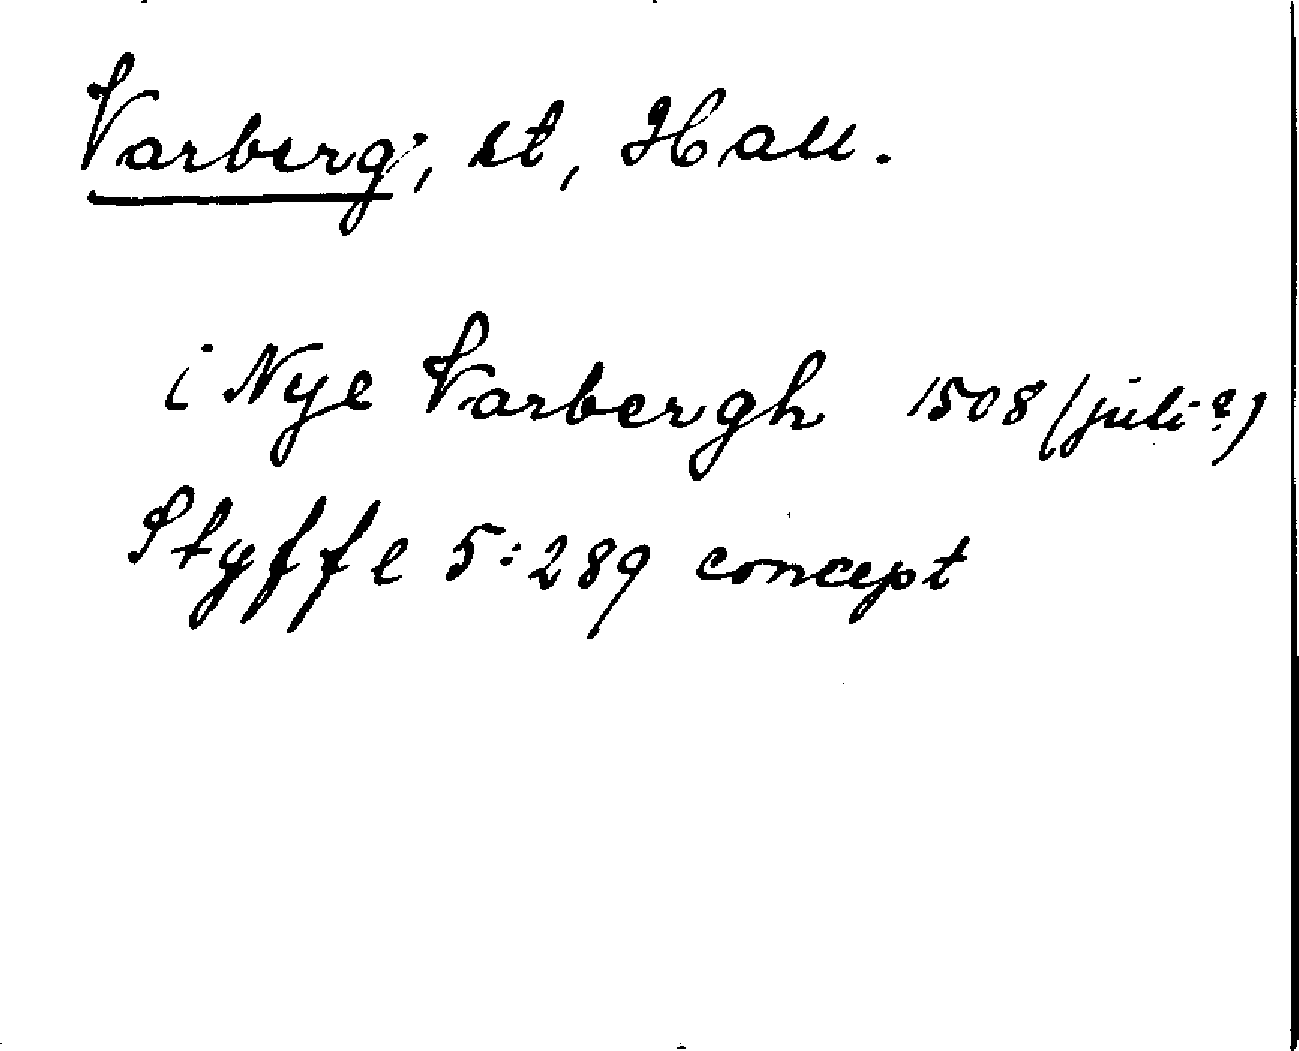 Varberg, st, Hall.
i Nye Varbergh 1508 (juli?)
Styffe 5:289 concept